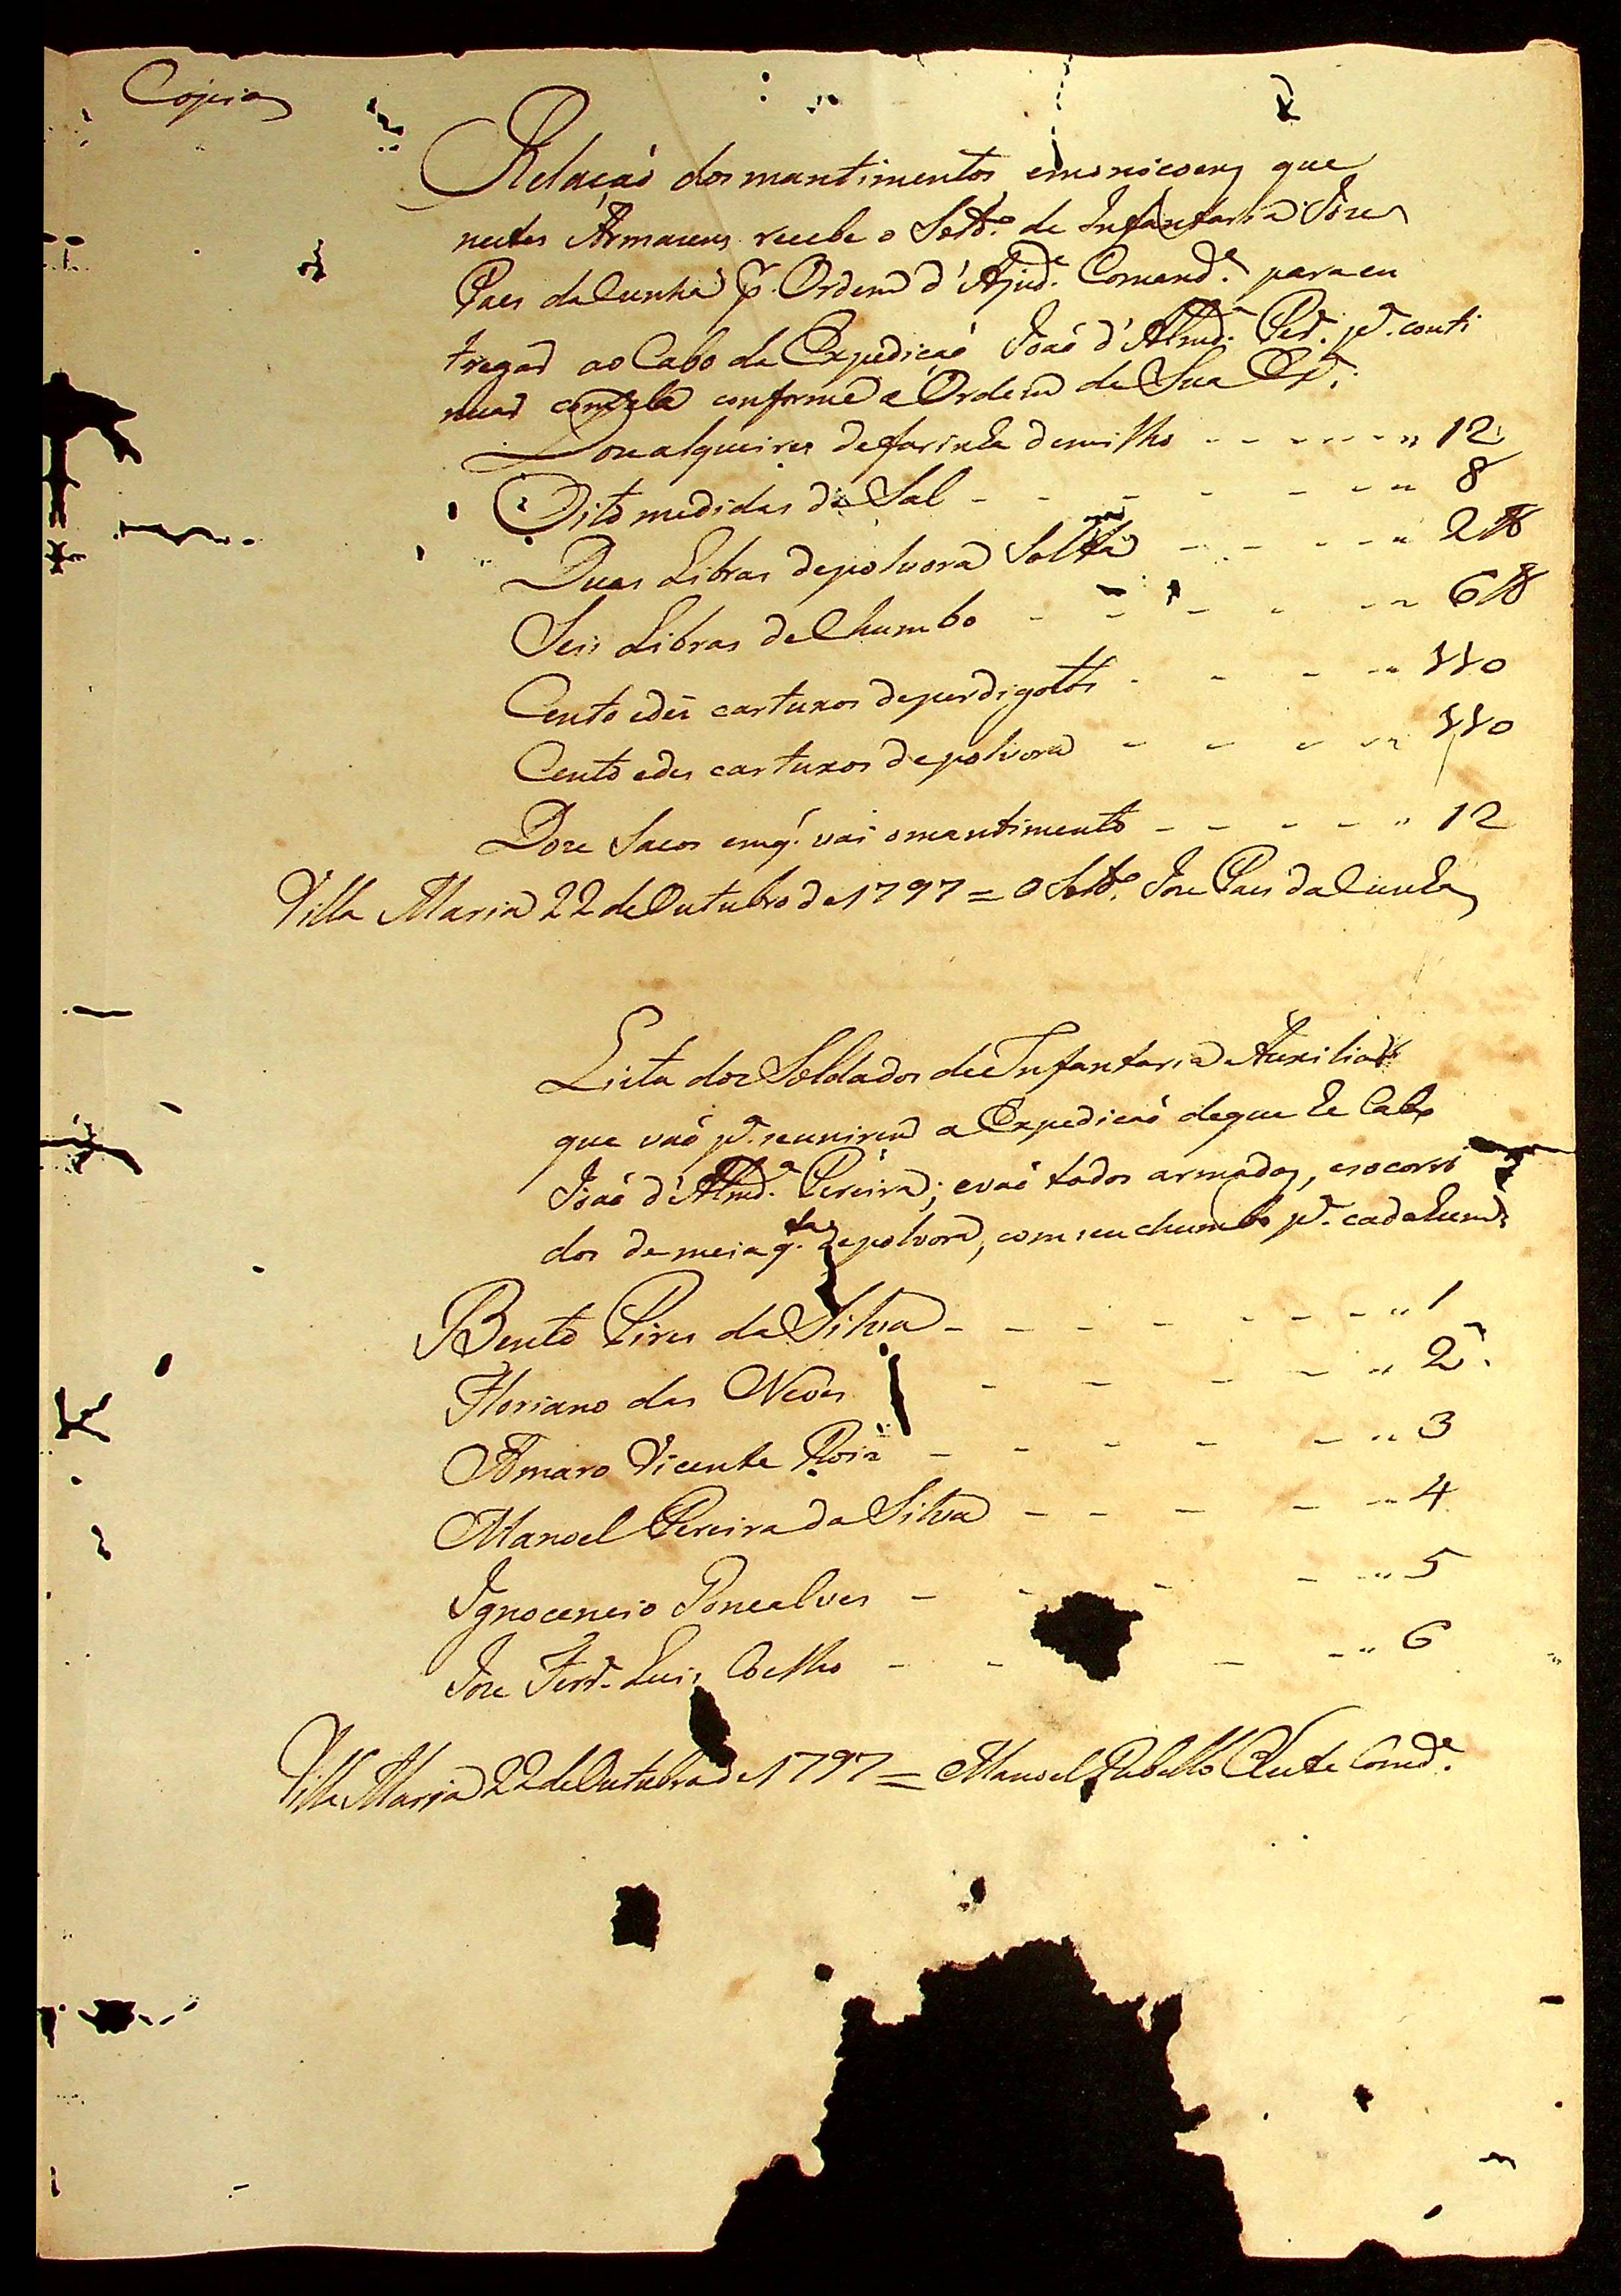 Copia
Relacaó dos mantimentos, emonicoens que
nestes Armacens recebe o Sold.º de Infantaria Joze
Paes da Cunha p. Ordem d'Ajud.e Comend.e para en
tregar ao Cabo da Expedicaó Joaó d'Almd.ª Per.ª p.ª conti
nuar com ela conforme a Ordem de Sua Ex.ª
Doze alqueires de farinha de milho - - - - - - " 12
Oito medidas de Sal - - - - - - - " 8
Duas Libras de polvora Solta - - - - - " 2 lb
Seis Libras de Chumbo - - - - - - " 6 lb
Cento e dez cartuxos de perdigotos - - - - " 110
Cento e des cartuxos de polvora - - - - " 110
Doze Sacos em q' vai o mantimento - - - - - " 12
Villa Maria 22 de Outubro de 1797 = O Sold.º Joze Paes da Cunha
Lista dos Soldados de Infantaria Auxiliar
que vaó p.ª reunirem a Expedicaó de que he Cabo
Joaó d'Almd.ª Pereira; e vaó todos armados, e socorri
dos de meia q.ta de polvora, com seu chumbo p.ª cada hum
Bento Pires da Silva - - - - - - - - " 1
Floriano das Neves - - - - - " 2
Amaro Vicente Roiz - - - - - " 3
Manoel Pereira da Silva - - - - - " 4
Ignocencio Goncalves - - - - " 5
Joze Ferr.ª Luis Coelho - - - - " 6
Villa Maria 22 de Outubro de 1797 = Manoel Rebello Comd.e